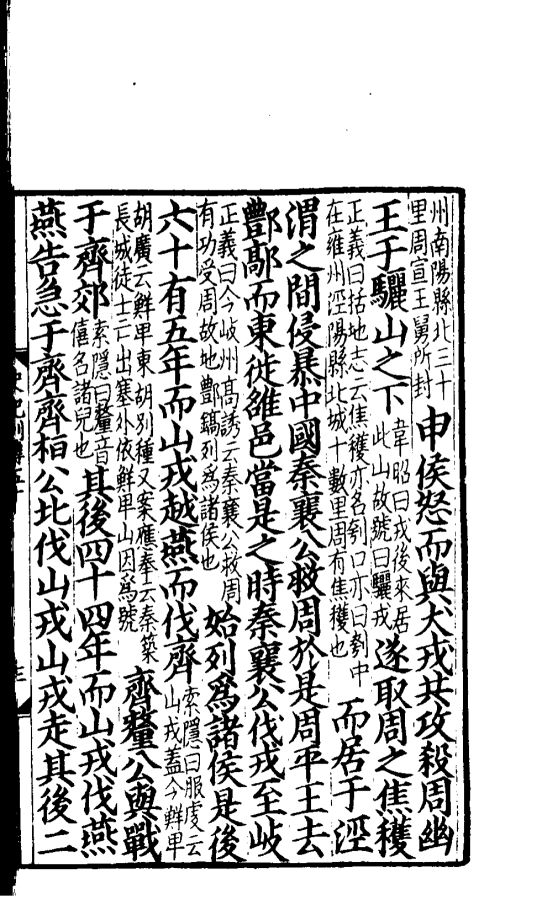 州南陽縣北三十里周宣王舅所封申侯怒而與犬戎共攻殺周幽
王于驪山之下韋昭曰戎後來居此山故號曰驪戎遂取周之焦穫
正義曰括地志云焦穫亦名刳口亦曰刳中在雍州涇陽縣北城十數里周有焦穫也而居于涇
渭之間侵暴中國秦襄公救周於是周平王去
酆鄗而東徙雒邑當是之時秦襄公伐戎至岐
正義曰今岐州高誘云秦襄公救周有功受周故地酆鎬列爲諸侯也始列爲諸侯是後
六十有五年而山戎越燕而伐齊索隱曰服虔云山戎蓋今鮮卑
胡廣云鮮卑東胡別種又案應奉云秦築長城徒士亡出塞外依鮮卑山因爲號齊釐公與戰
于齊郊索隱曰釐音僖名諸兒也其後四十四年而山戎伐燕
燕告急于齊齊桓公北伐山戎山戎走其後二